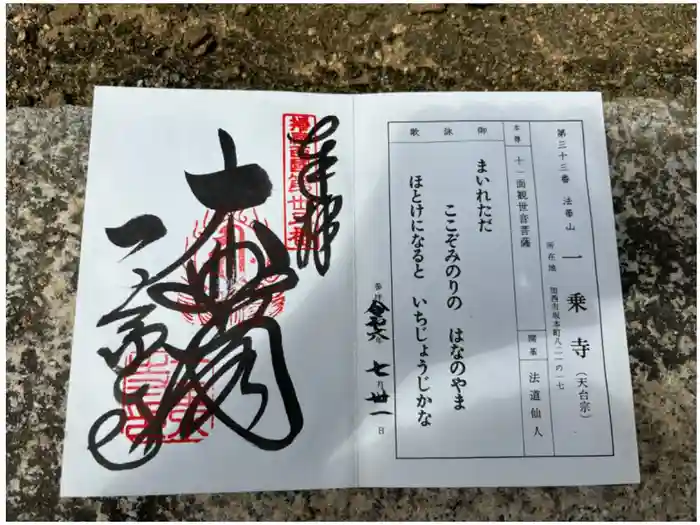 第三十三番 法華山 一乗寺(天台宗)
所在地 加西市坂本町八二一の一七
本尊 十一面観世音菩薩
開基 法道仙人
御詠歌
まいれただ
ここぞみのりの はなのやま
ほとけになると いちじょうじかな
参拝 令和六年 七月 卅一日
奉拝
大悲閣
一乗寺